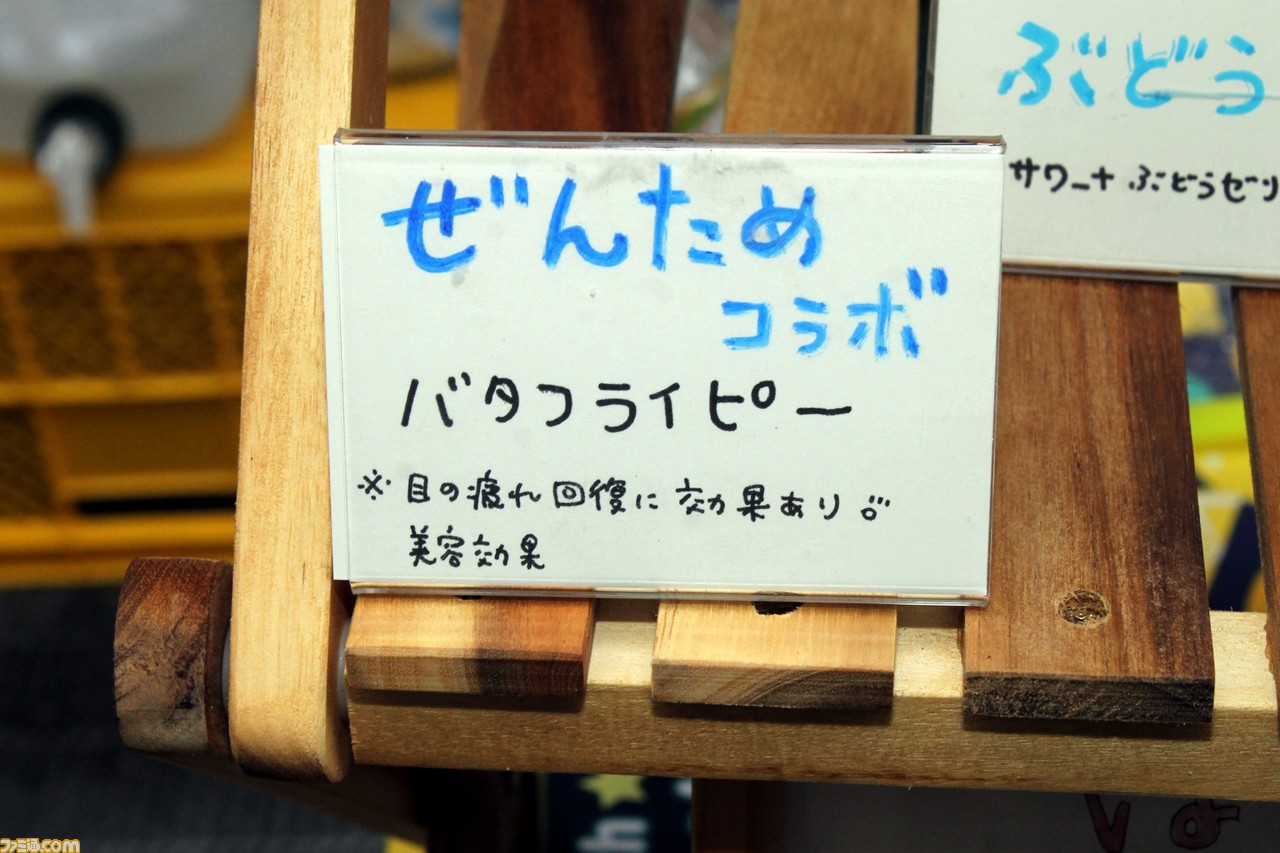 ぜんため
コラボ
バタフライピー
※目の疲れ回復に効果あり
美容効果
ぶどう
サワー+ぶどうゼリ
h
ファミ通.com